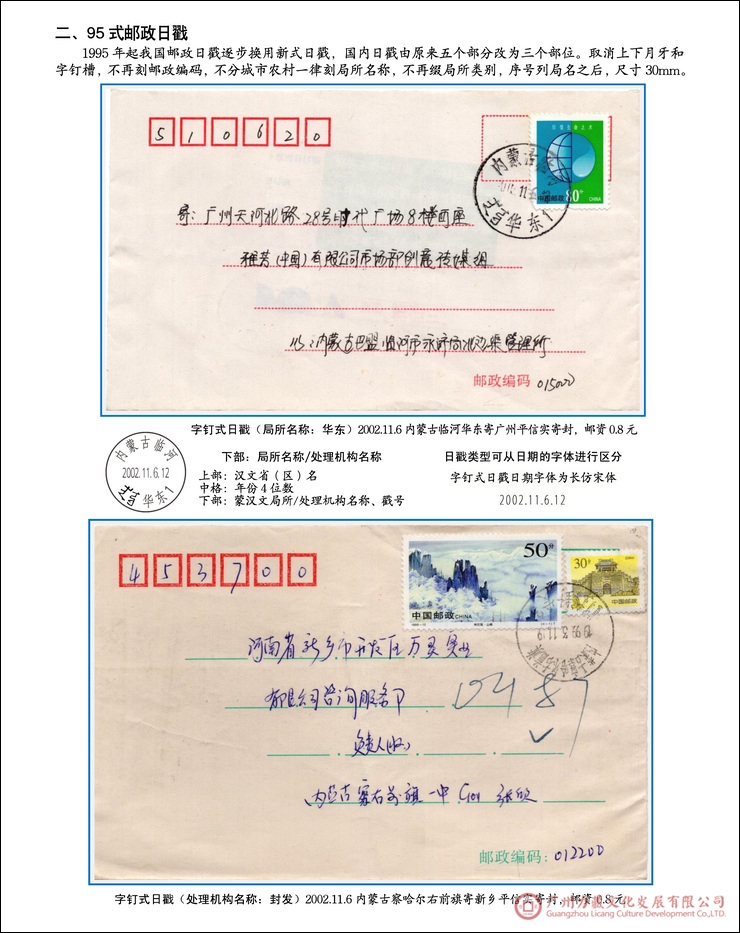 二、95 式邮政日戳
1995 年起我国邮政日戳逐步换用新式日戳，国内日戳由原来五个部分改为三个部位。取消上下月牙和
字钉槽，不再刻邮政编码，不分城市农村一律刻局所名称，不再缀局所类别，序号列局名之后，尺寸 30mm。
510620
中国邮政 80分 CHINA
内蒙古临
华东1
寄：广州天河北路28号时代广场8楼西座
雅芳（中国）有限公司市场部创意传媒组
内蒙古巴盟临河市永济
管理所
邮政编码 015000
字钉式日戳（局所名称：华东）2002.11.6 内蒙古临河华东寄广州平信实寄封，邮资 0.8 元
内蒙古临河
2002.11.6.12
华东1
下部：局所名称/处理机构名称
上部：汉文省（区）名
中格：年份 4 位数
下部：蒙汉文局所/处理机构名称、戳号
日戳类型可从日期的字体进行区分
字钉式日戳日期字体为长仿宋体
2002.11.6.12
453700
50分
中国邮政 CHINA
30分
中国邮政
河南省新乡市开发区
咨询服务
负责人(收)
内蒙古察右前旗一中 张欣
邮政编码：012200
字钉式日戳（处理机构名称：封发）2002.11.6 内蒙古察哈尔右前旗寄新乡平信实寄封，邮资 0.8 元
广州力藏文化发展有限公司
Guangzhou Licang Culture Development Co.,LTD.